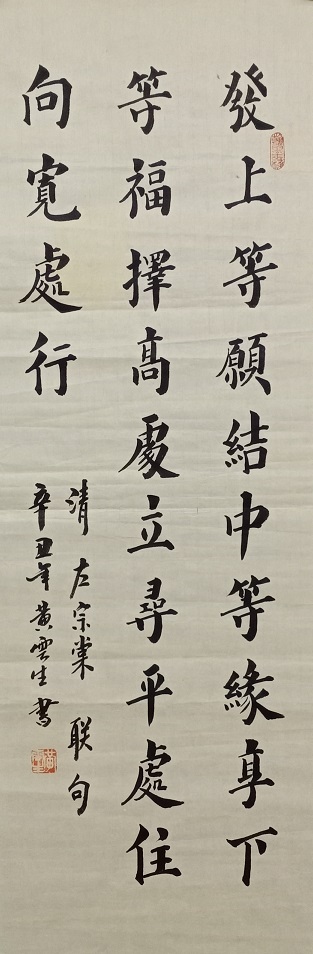 發上等願結中等緣享下
等福擇高處立尋平處住
向寬處行
清左宗棠联句
辛丑年黄雲生書